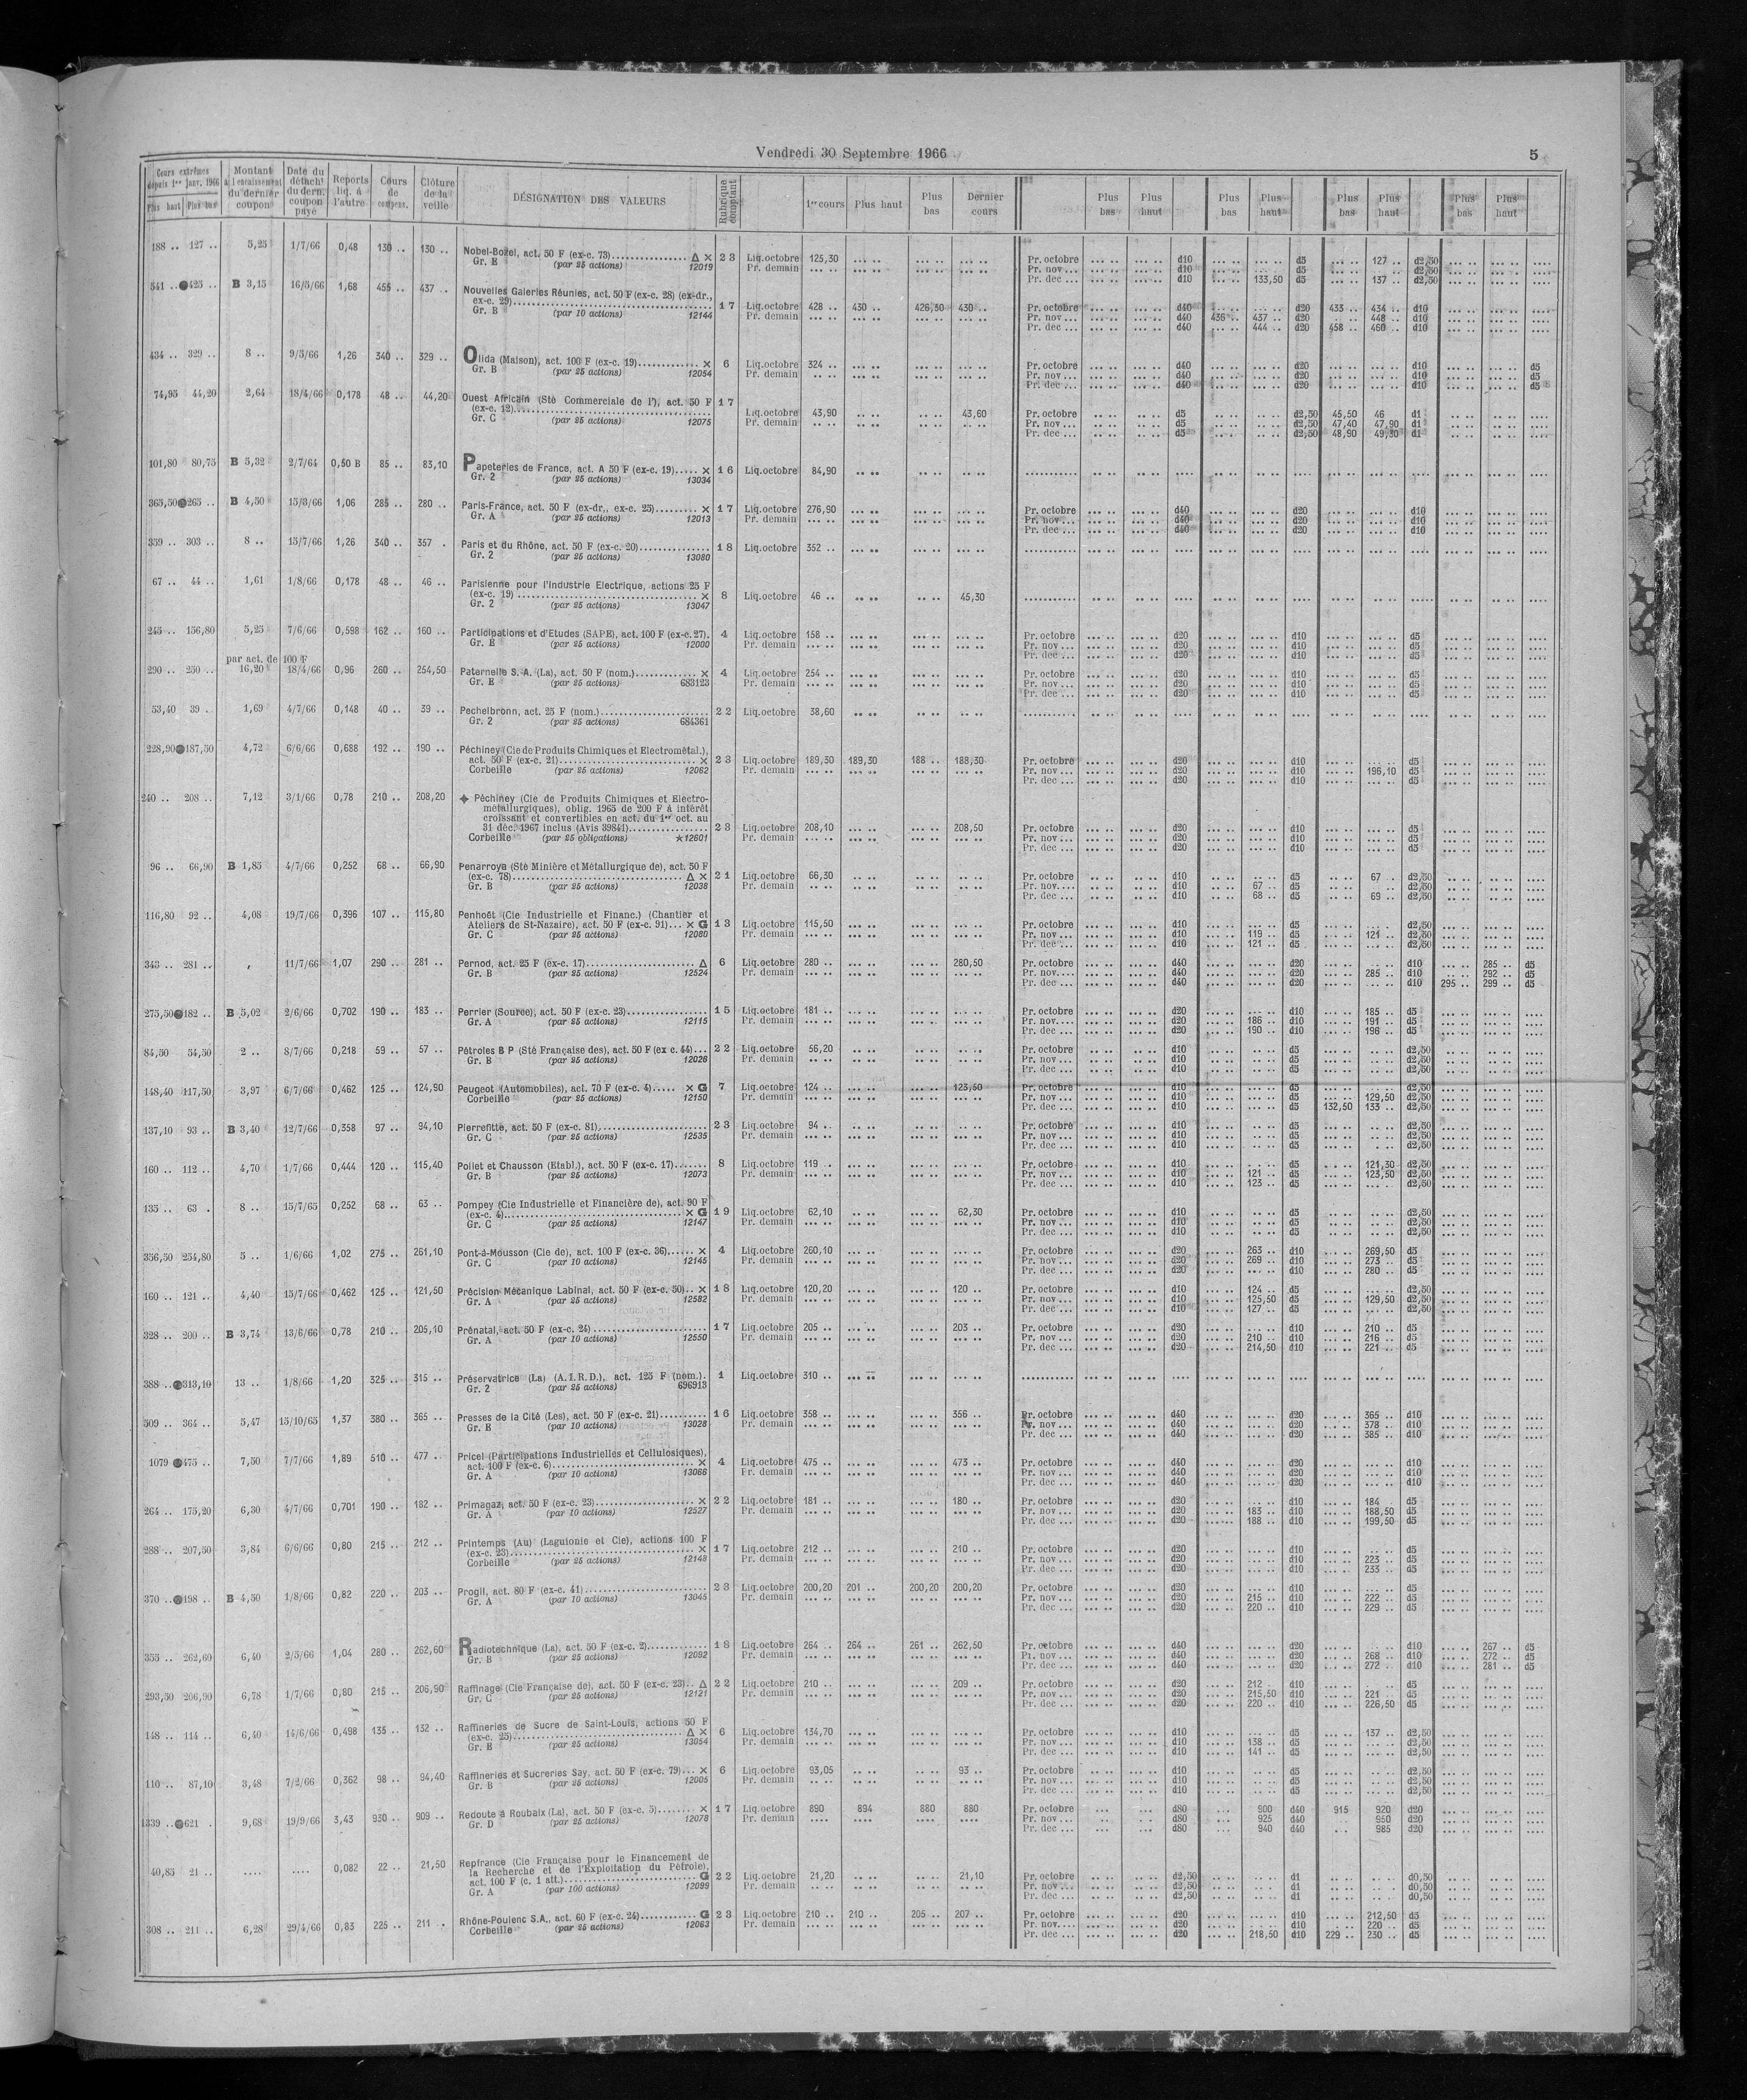 Vendredi 30 Septembre 1966
5
Cours extrêmes depuis 1er janv. 1966 Plus haut Plus bas | Montant à l'encaissement du dernier coupon | Date du détacht du dern. coupon payé | Reports liq. à l'autre | Cours de compens. | Clôture de la veille | DÉSIGNATION DES VALEURS | Rubrique comptant | 1er cours | Plus haut | Plus bas | Dernier cours | Plus bas | Plus haut | Plus bas | Plus haut | Plus bas | Plus haut | Plus bas | Plus haut
188 .. 127 .. 5,25 1/7/66 0,48 130 .. 130 .. Nobel-Bozel, act. 50 F (ex-c. 73) Δ × 23 Liq.octobre 125,30 Pr. octobre d10 d5 127 .. d2,50
Gr. E (par 25 actions) 12019 Pr. demain Pr. nov... d10 d5 d2,50
Pr. dec ... d10 133,50 d5 137 .. d2,50
541 .. 425 .. B 3,15 16/5/66 1,68 455 .. 437 . Nouvelles Galeries Réunies, act. 50 F (ex-c. 28) (ex-dr.,
ex-c. 29) 17 Liq.octobre 428 .. 430 .. 426,50 430 .. Pr. octobre d40 d20 433 .. 434 .. d10
Gr. B (par 10 actions) 12144 Pr. demain Pr. nov... d40 436 .. 437 .. d20 448 .. d10
Pr. dec ... d40 444 .. d20 458 .. 460 .. d10
434 .. 329 .. 8 .. 9/5/66 1,26 340 .. 329 .. Olida (Maison), act. 100 F (ex-c. 19) × 6 Liq.octobre 324 .. Pr. octobre d40 d20 d10 d5
Gr. B (par 25 actions) 12054 Pr. demain Pr. nov ... d40 d20 d10 d5
Pr. dec ... d40 d20 d10 d5
74,95 44,20 2,64 18/4/66 0,178 48 .. 44,20 Ouest Africain (Sté Commerciale de l'), act. 50 F 17
(ex-c. 12) Liq.octobre 43,90 43,60 Pr. octobre d5 d2,50 45,50 46 d1
Gr. C (par 25 actions) 12075 Pr. demain Pr. nov ... d5 d2,50 47,40 47,90 d1
Pr. dec ... d5 d2,50 48,90 49,30 d1
101,80 80,75 B 5,32 2/7/64 0,50 B 85 .. 83,10 Papeteries de France, act. A 50 F (ex-c. 19) × 16 Liq.octobre 84,90
Gr. 2 (par 25 actions) 13034
365,50 265 .. B 4,50 15/3/66 1,06 285 .. 280 .. Paris-France, act. 50 F (ex-dr., ex-c. 25) × 17 Liq.octobre 276,90 Pr. octobre d40 d20 d10
Gr. A (par 25 actions) 12013 Pr. demain Pr. nov... d40 d20 d10
Pr. dec ... d40 d20 d10
359 .. 303 .. 8 .. 15/7/66 1,26 340 .. 357 . Paris et du Rhône, act. 50 F (ex-c. 20) 18 Liq.octobre 352 ..
Gr. 2 (par 25 actions) 13080
67 .. 44 .. 1,61 1/8/66 0,178 48 .. 46 .. Parisienne pour l'Industrie Electrique, actions 25 F
(ex-c. 19) × 8 Liq.octobre 46 .. 45,30
Gr. 2 (par 25 actions) 13047
245 .. 156,80 5,25 7/6/66 0,598 162 .. 160 .. Participations et d'Etudes (SAPE), act. 100 F (ex-c.27). 4 Liq.octobre 158 .. Pr. octobre d20 d10 d5
Gr. E (par 25 actions) 12000 Pr. demain Pr. nov ... d20 d10 d5
Pr. dec ... d20 d10 d5
par act. de 100 F
290 .. 250 .. 16,20 18/4/66 0,96 260 .. 254,50 Paternelle S.-A. (La), act. 50 F (nom.) × 4 Liq.octobre 254 .. Pr. octobre d20 d10 d5
Gr. E (par 25 actions) 683123 Pr. demain Pr. nov ... d20 d10 d5
Pr. dec ... d20 d10 d5
53,40 39 .. 1,69 4/7/66 0,148 40 .. 39 .. Pechelbronn, act. 25 F (nom.) 22 Liq.octobre 38,60
Gr. 2 (par 25 actions) 684361
228,90 187,50 4,72 6/6/66 0,688 192 .. 190 .. Péchiney (Cie de Produits Chimiques et Electrométal.),
act. 50 F (ex-c. 21) × 23 Liq.octobre 189,30 189,30 188 .. 188,30 Pr. octobre d20 d10 d5
Corbeille (par 25 actions) 12062 Pr. demain Pr. nov ... d20 d10 196,10 d5
Pr. dec ... d20 d10 d5
240 .. 208 .. 7,12 3/1/66 0,78 210 .. 208,20 Péchiney (Cie de Produits Chimiques et Electro-
métallurgiques), oblig. 1965 de 200 F à intérêt
croissant et convertibles en act. du 1er oct. au
31 déc. 1967 inclus (Avis 39841) 23 Liq.octobre 208,10 208,50 Pr. octobre d20 d10 d5
Corbeille (par 25 obligations) ★12601 Pr. demain Pr. nov ... d20 d10 d5
Pr. dec ... d20 d10 d5
96 .. 66,90 B 1,85 4/7/66 0,252 68 .. 66,90 Penarroya (Sté Minière et Métallurgique de), act. 50 F
(ex-c. 78) Δ × 21 Liq.octobre 66,30 Pr. octobre d10 d5 67 .. d2,50
Gr. B (par 25 actions) 12038 Pr. demain Pr. nov.... d10 67 .. d5 d2,50
Pr. dec ... d10 68 .. d5 69 .. d2,50
116,80 92 .. 4,08 19/7/66 0,396 107 .. 115,80 Penhoët (Cie Industrielle et Financ.) (Chantier et
Ateliers de St-Nazaire), act. 50 F (ex-c. 91)... × G 13 Liq.octobre 115,50 Pr. octobre d10 d5 d2,50
Gr. C (par 25 actions) 12080 Pr. demain Pr. nov ... d10 119 .. d5 121 .. d2,50
Pr. dec ... d10 121 .. d5 d2,50
343 .. 281 .. , 11/7/66 1,07 290 .. 281 .. Pernod, act. 25 F (ex-c. 17) Δ 6 Liq.octobre 280 .. 280,50 Pr. octobre d40 d20 d10 285 .. d5
Gr. B (par 25 actions) 12524 Pr. demain Pr. nov.... d40 d20 285 .. d10 292 .. d5
Pr. dec ... d40 d20 d10 295 .. 299 .. d5
275,50 182 .. B 5,02 2/6/66 0,702 190 .. 183 .. Perrier (Source), act. 50 F (ex-c. 23) 15 Liq.octobre 181 .. Pr. octobre d20 d10 185 .. d5
Gr. A (par 25 actions) 12115 Pr. demain Pr. nov.... d20 186 .. d10 191 .. d5
Pr. dec ... d20 190 .. d10 196 .. d5
84,50 54,50 2 .. 8/7/66 0,218 59 .. 57 .. Pétroles B P (Sté Française des), act. 50 F (ex c. 44)... 22 Liq.octobre 56,20 Pr. octobre d10 d5 d2,50
Gr. B (par 25 actions) 12026 Pr. demain Pr. nov ... d10 d5 d2,50
Pr. dec ... d10 d5 d2,50
148,40 117,50 3,97 6/7/66 0,462 125 .. 124,90 Peugeot (Automobiles), act. 70 F (ex-c. 4)..... × G 7 Liq.octobre 124 .. 123,50 Pr. octobre d10 d5 d2,50
Corbeille (par 25 actions) 12150 Pr. demain Pr. nov ... d10 d5 129,50 d2,50
Pr. dec ... d10 d5 132,50 133 .. d2,50
137,10 93 .. B 3,40 12/7/66 0,358 97 .. 94,10 Pierrefitte, act. 50 F (ex-c. 81) 23 Liq.octobre 94 .. Pr. octobre d10 d5 d2,50
Gr. C (par 25 actions) 12535 Pr. demain Pr. nov ... d10 d5 d2,50
Pr. dec ... d10 d5 d2,50
160 .. 112 .. 4,70 1/7/66 0,444 120 .. 115,40 Poliet et Chausson (Etabl.), act. 50 F (ex-c. 17) 8 Liq.octobre 119 .. Pr. octobre d10 d5 121,30 d2,50
Gr. B (par 25 actions) 12073 Pr. demain Pr. nov ... d10 121 .. d5 123,50 d2,50
Pr. dec ... d10 123 .. d5 d2,50
135 .. 63 . 8 .. 15/7/65 0,252 68 .. 63 .. Pompey (Cie Industrielle et Financière de), act. 90 F
(ex-c. 4) × G 19 Liq.octobre 62,10 62,30 Pr. octobre d10 d5 d2,50
Gr. C (par 25 actions) 12147 Pr. demain Pr. nov ... d10 d5 d2,50
Pr. dec ... d10 d5 d2,50
356,50 254,80 5 .. 1/6/66 1,02 275 .. 261,10 Pont-à-Mousson (Cie de), act. 100 F (ex-c. 36) × 4 Liq.octobre 260,10 Pr. octobre d20 263 .. d10 269,50 d5
Gr. C (par 10 actions) 12145 Pr. demain Pr. nov ... d20 269 .. d10 273 .. d5
Pr. dec ... d20 d10 280 .. d5
160 .. 121 .. 4,40 15/7/66 0,462 125 .. 121,50 Précision Mécanique Labinal, act. 50 F (ex-c. 50).. × 18 Liq.octobre 120,20 120 .. Pr. octobre d10 124 .. d5 d2,50
Gr. A (par 25 actions) 12582 Pr. demain Pr. nov ... d10 125,50 d5 129,50 d2,50
Pr. dec ... d10 127 .. d5 d2,50
328 .. 200 .. B 3,74 13/6/66 0,78 210 .. 205,10 Prénatal, act. 50 F (ex-c. 24) 17 Liq.octobre 205 .. 203 .. Pr. octobre d20 d10 210 .. d5
Gr. A (par 10 actions) 12550 Pr. demain Pr. nov ... d20 210 .. d10 216 .. d5
Pr. dec ... d20 214,50 d10 221 .. d5
388 .. 313,10 13 .. 1/8/66 1,20 325 .. 315 .. Préservatrice (La) (A.I.R.D.), act. 125 F (nom.). 1 Liq.octobre 310 ..
Gr. 2 (par 25 actions) 696913
509 .. 364 .. 5,47 15/10/65 1,37 380 .. 365 .. Presses de la Cité (Les), act. 50 F (ex-c. 21) 16 Liq.octobre 358 .. 356 .. Pr. octobre d40 d20 365 .. d10
Gr. E (par 10 actions) 13028 Pr. demain Pr. nov ... d40 d20 378 .. d10
Pr. dec ... d40 d20 385 .. d10
1079 475 .. 7,50 7/7/66 1,89 510 .. 477 .. Pricel (Participations Industrielles et Cellulosiques),
act. 100 F (ex-c. 6) × 4 Liq.octobre 475 .. 473 .. Pr. octobre d40 d20 d10
Gr. A (par 10 actions) 13066 Pr. demain Pr. nov ... d40 d20 d10
Pr. dec ... d40 d20 d10
264 .. 175,20 6,30 4/7/66 0,701 190 .. 182 .. Primagaz, act. 50 F (ex-c. 23) × 22 Liq.octobre 181 .. 180 .. Pr. octobre d20 d10 184 d5
Gr. A (par 10 actions) 12527 Pr. demain Pr. nov ... d20 183 .. d10 188,50 d5
Pr. dec ... d20 188 .. d10 199,50 d5
288 .. 207,50 3,84 6/6/66 0,80 215 .. 212 .. Printemps (Au) (Laguionie et Cie), actions 100 F
(ex-c. 23) × 17 Liq.octobre 212 .. 210 .. Pr. octobre d20 d10 d5
Corbeille (par 25 actions) 12148 Pr. demain Pr. nov ... d20 d10 223 .. d5
Pr. dec ... d20 d10 233 .. d5
370 .. 198 .. B 4,50 1/8/66 0,82 220 .. 203 .. Progil, act. 80 F (ex-c. 41) 23 Liq.octobre 200,20 201 .. 200,20 200,20 Pr. octobre d20 d10 d5
Gr. A (par 10 actions) 13045 Pr. demain Pr. nov ... d20 215 .. d10 222 .. d5
Pr. dec ... d20 220 .. d10 229 .. d5
355 .. 262,60 6,40 2/5/66 1,04 280 .. 262,60 Radiotechnique (La), act. 50 F (ex-c. 2) 18 Liq.octobre 264 .. 264 .. 261 .. 262,50 Pr. octobre d40 d20 d10 267 .. d5
Gr. B (par 25 actions) 12092 Pr. demain Pr. nov ... d40 d20 268 .. d10 272 .. d5
Pr. dec ... d40 d20 272 .. d10 281 .. d5
293,50 206,90 6,78 1/7/66 0,80 215 .. 206,90 Raffinage (Cie Française de), act. 50 F (ex-c. 23).. Δ 22 Liq.octobre 210 .. 209 .. Pr. octobre d20 212 .. d10 d5
Gr. C (par 25 actions) 12121 Pr. demain Pr. nov ... d20 215,50 d10 221 .. d5
Pr. dec ... d20 220 .. d10 226,50 d5
148 .. 114 .. 6,40 14/6/66 0,498 135 .. 132 .. Raffineries de Sucre de Saint-Louis, actions 50 F
(ex-c. 25) Δ × 6 Liq.octobre 134,70 Pr. octobre d10 d5 137 .. d2,50
Gr. E (par 25 actions) 13054 Pr. demain Pr. nov ... d10 138 .. d5 d2,50
Pr. dec ... d10 141 .. d5 d2,50
110 .. 87,10 3,48 7/2/66 0,362 98 .. 94,40 Raffineries et Sucreries Say, act. 50 F (ex-c. 79)... × 6 Liq.octobre 93,05 93 .. Pr. octobre d10 d5 d2,50
Gr. B (par 25 actions) 12005 Pr. demain Pr. nov ... d10 d5 d2,50
Pr. dec ... d10 d5 d2,50
1339 .. 621 . 9,68 19/9/66 3,43 930 .. 909 .. Redoute à Roubaix (La), act. 50 F (ex-c. 5) × 17 Liq.octobre 890 894 880 880 Pr. octobre d80 900 d40 915 920 d20
Gr. D (par 25 actions) 12078 Pr. demain Pr. nov ... d80 925 d40 950 d20
Pr. dec ... d80 940 d40 985 d20
40,85 21 .. .... .... 0,082 22 .. 21,50 Repfrance (Cie Française pour le Financement de
la Recherche et de l'Exploitation du Pétrole),
act. 100 F (c. 1 att.) G 22 Liq.octobre 21,20 21,10 Pr. octobre d2,50 d1 d0,50
Gr. A (par 100 actions) 12099 Pr. demain Pr. nov ... d2,50 d1 d0,50
Pr. dec ... d2,50 d1 d0,50
308 .. 211 .. 6,28 29/4/66 0,83 225 .. 211 .. Rhône-Poulenc S.A., act. 60 F (ex-c. 24) G 23 Liq.octobre 210 .. 210 .. 205 .. 207 .. Pr. octobre d20 d10 212,50 d5
Corbeille (par 25 actions) 12063 Pr. demain Pr. nov.... d20 d10 220 .. d5
Pr. dec ... d20 218,50 d10 229 .. 230 .. d5